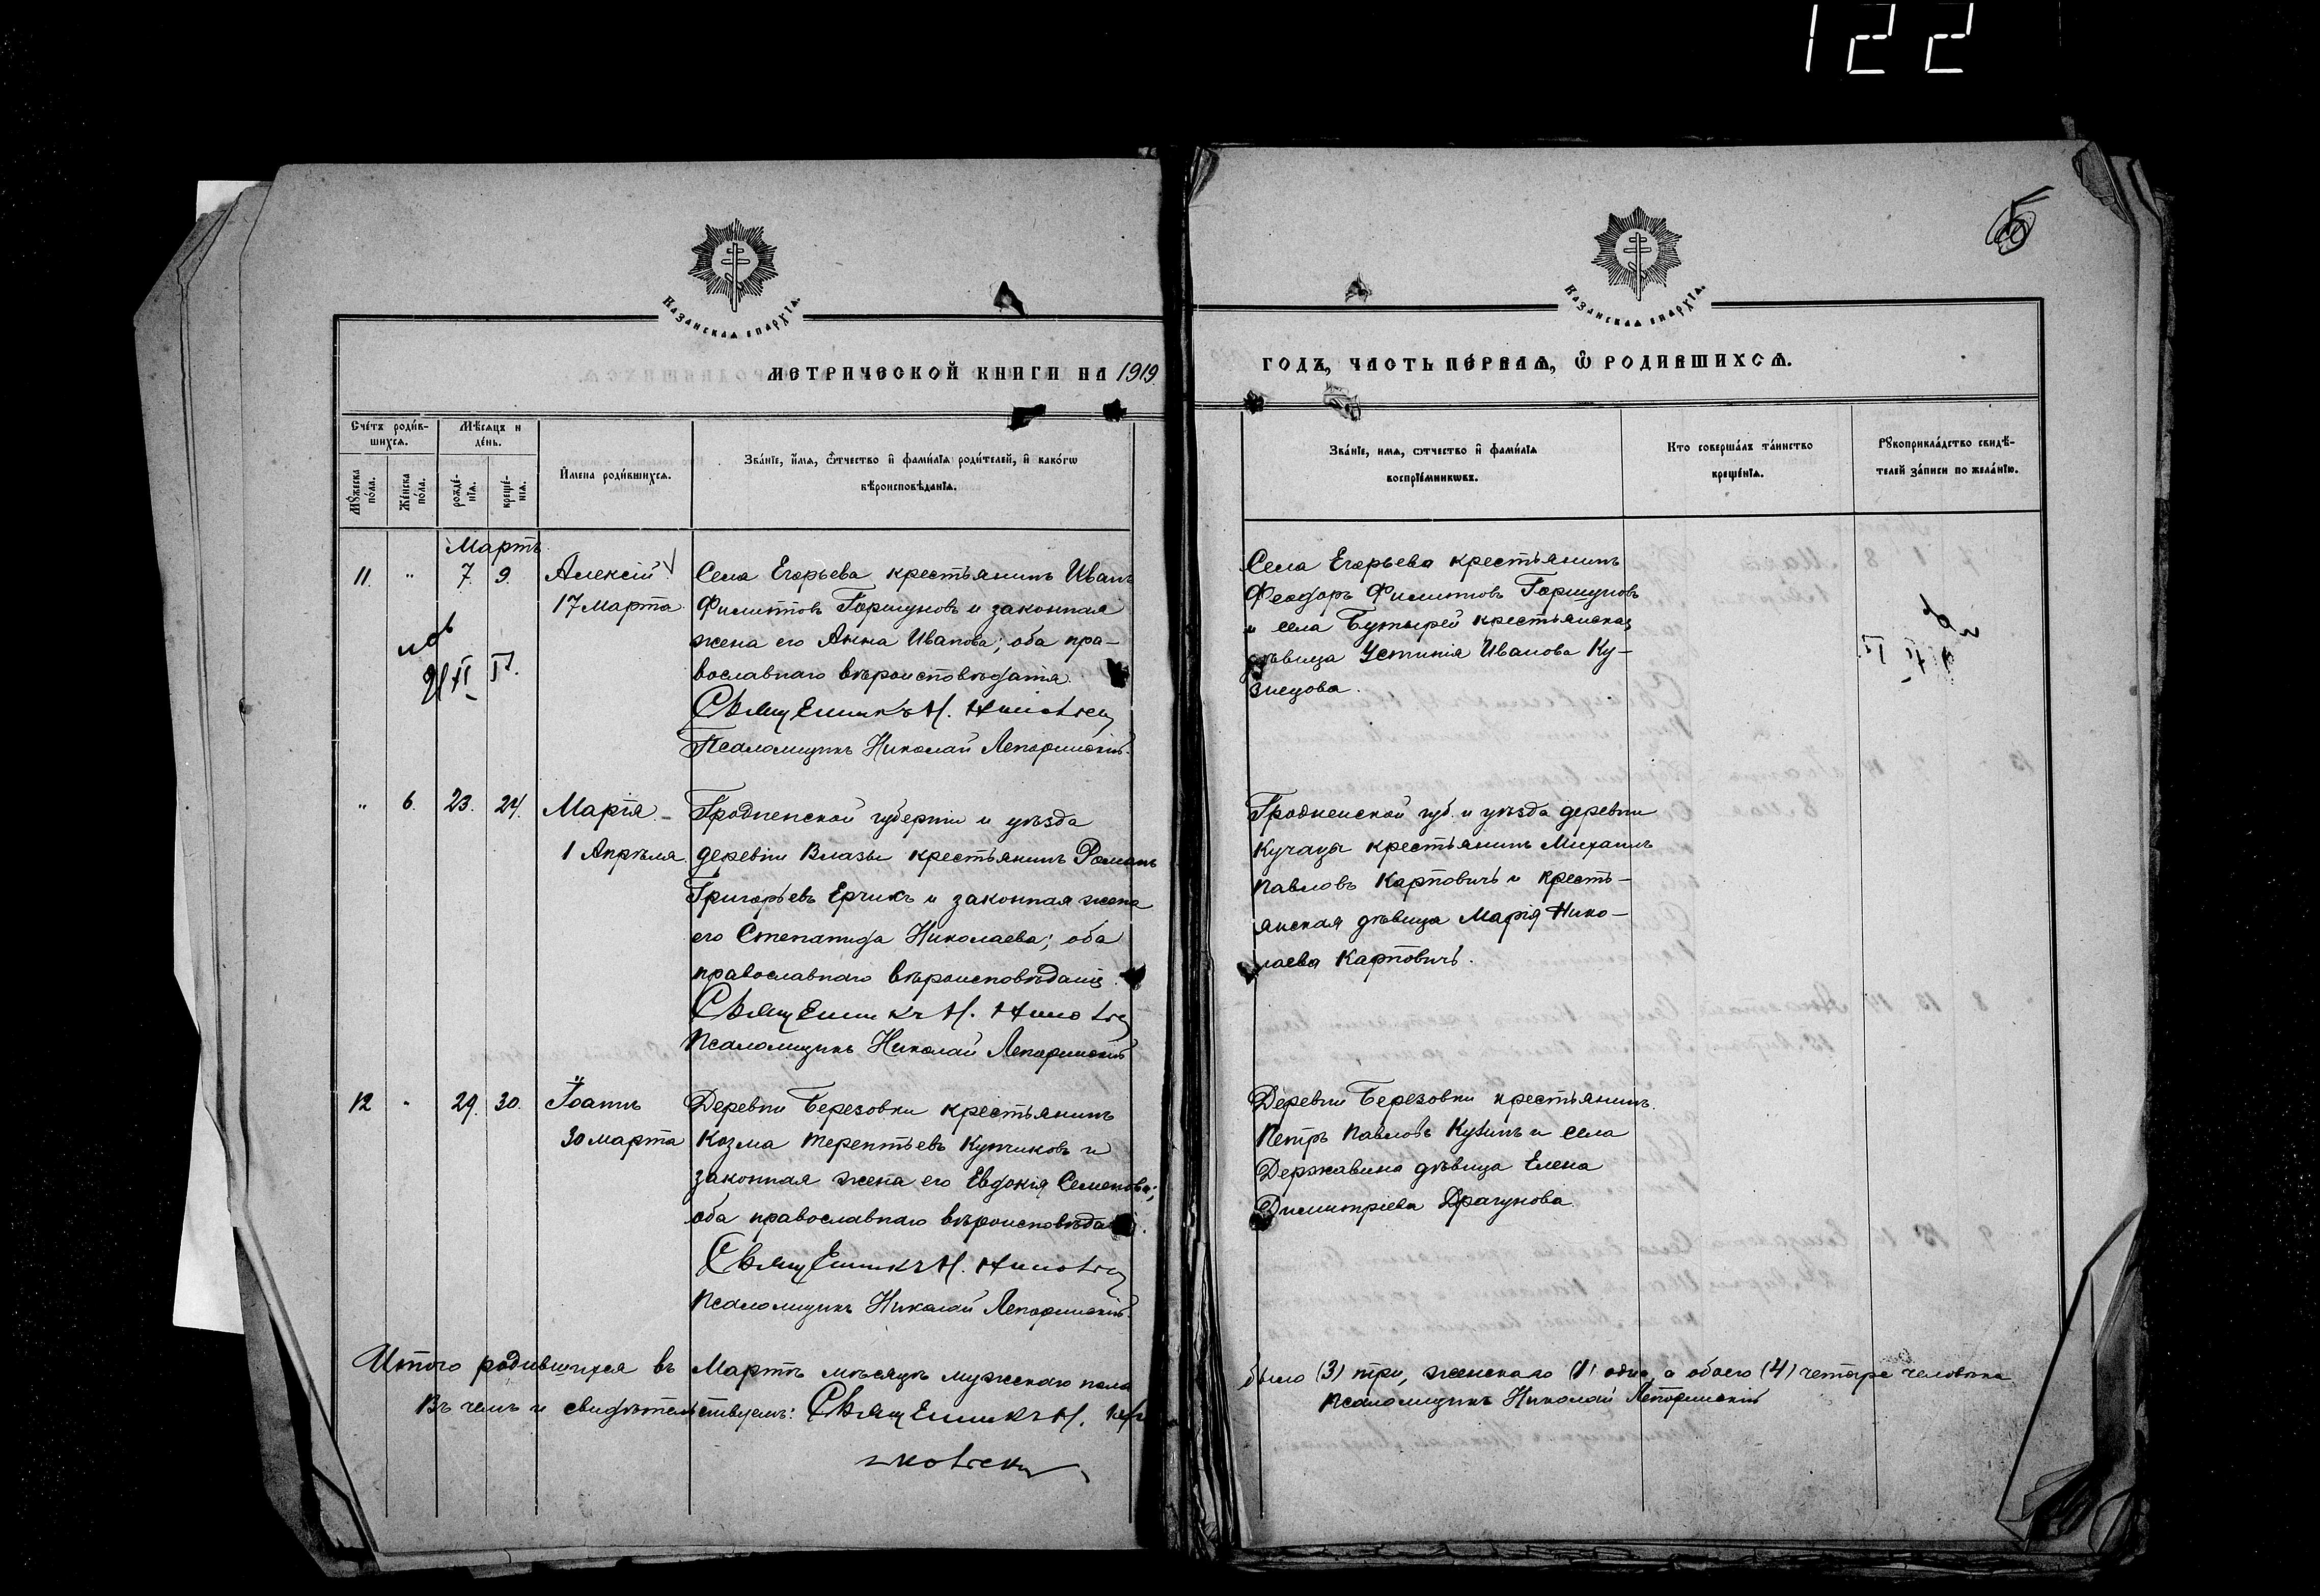 122
5
Казанская епархїа.
Казанская епархїа.
МЕТРИЧЕСКОЙ КНИГИ НА 1919
ГОДЪ, ЧАСТЬ ПЕ́РВАѦ, Ѿ РОДИВШИХСѦ.
Сче́тъ роди́в-
шихсѧ.
Мѣ́сѧцъ и
де́нь.
Мꙋ́жеска
по́ла.
Же́нска
по́ла.
рожде́-
нїѧ.
креще́-
нїѧ.
И҆мена роди́вшихсѧ.
Зва́нїе, и҆́мѧ, ѻ҆́тчество и҆ фами́лїѧ роди́телей, и҆ како́гѡ
вѣроисповѣ́данїѧ.
Зва́нїе, имѧ, ѻтчество и҆ фами́лїѧ
воспрїе́мникѡвъ.
Кто соверша́лъ та́инство
креще́нїѧ.
Рꙋкоприкла́дство свидѣ́-
телей за́писи по жела́нїю.
Мартъ.
11. " 7. 9. Алексій
17 Марта
Села Егорьева крестьянинъ Иванъ
Филиптовъ Горшуновъ и законная
жена его Анна Иванова; оба пра-
вославнаго вѣроисповѣданія.
Священникъ Н.
Псаломщикъ Николай Лепоринскій.
Села Егорьева крестьянинъ
Феодоръ Филиптовъ Горшуновъ
и села Бутырей крестьянская
дѣвица Устинія Иванова Ку-
знецова.
" 6. 23. 24. Марія
1 Апрѣля
Гродненской губерніи и уѣзда
деревни Власы крестьянинъ Романъ
Григорьевъ Ерчикъ и законная жена
его Степанида Николаева; оба
православнаго вѣроисповѣданія.
Священникъ Н.
Псаломщикъ Николай Лепоринскій
Гродненской губ. и уѣзда деревни
Кучацы крестьянинъ Михаилъ
Павловъ Карповичъ и крестъ-
янская дѣвица Марія Нико-
лаева Карповичъ.
12 " 29. 30. Іоаннъ
30 марта
Деревни Березовки крестьянинъ
Козма Терентьевъ Купчиковъ и
законная жена его Евдокія Семенова;
оба православнаго
Священникъ Н.
Псаломщикъ Николай Лепоринскій.
Деревни Березовки крестьянинъ
Петръ Павловъ Кузинъ и села
Державина дѣвица Елена
Димитріева Драгунова.
Итого родившихся въ Мартѣ мѣсяцѣ мужскаго пола
было (3) три, женскаго (1) одна, а обоего (4) четыре человѣка
Въ чемъ и свидѣтельствуемъ: Священникъ Н.
Псаломщикъ Николай Лепоринскій